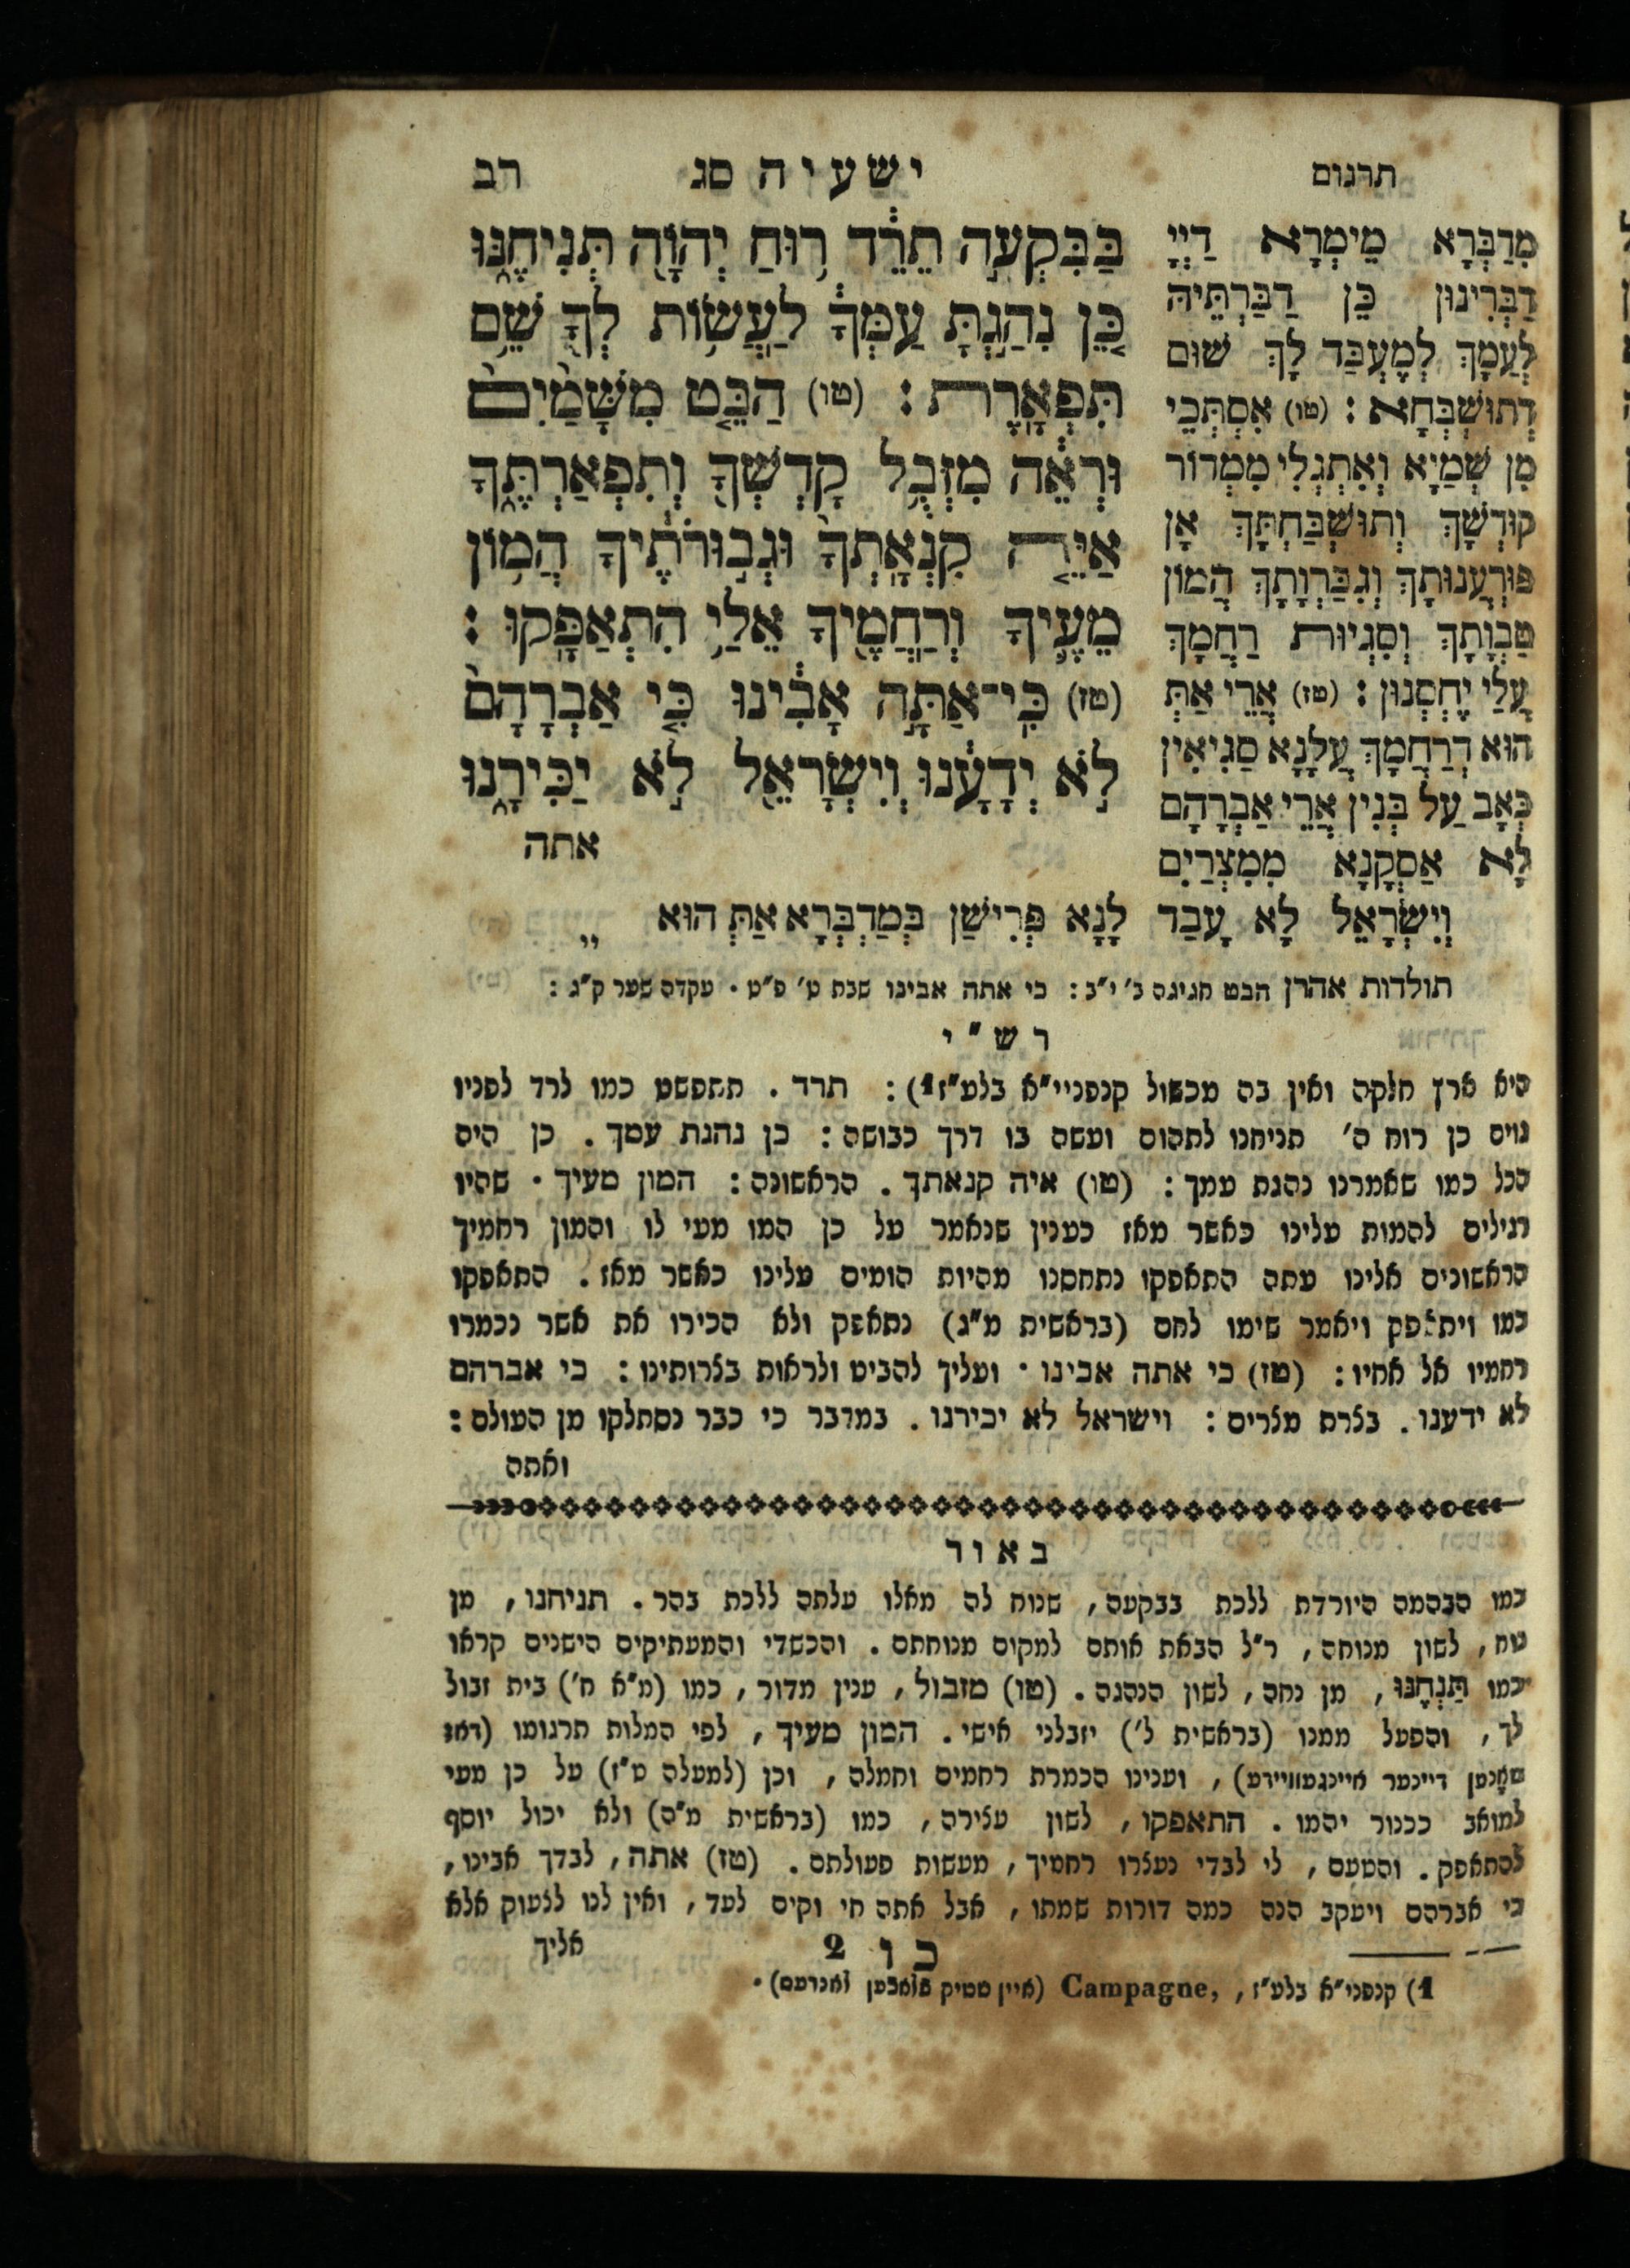 תרגום
ישעיה סג
רב
בַּבִּקְעָ֣ה תֵרֵ֔ד ר֥וּחַ יְהוָ֖ה תְּנִיחֶ֑נּוּ
כֵּ֤ן נִהַ֙גְתָּ֙ עַמְּךָ֔ לַעֲשׂ֥וֹת לְךָ֖ שֵׁ֥ם
תִּפְאָֽרֶת : (טו) הַבֵּ֤ט מִשָּׁמַ֙יִם֙
וּרְאֵ֔ה מִזְּבֻ֥ל קָדְשְׁךָ֖ וְתִפְאַרְתֶּ֑ךָ
אַיֵּ֤ה קִנְאָֽתְךָ֙ וּגְב֣וּרֹתֶ֔יךָ הֲמ֥וֹן
מֵעֶ֛יךָ וְֽרַחֲמֶ֖יךָ אֵלַ֥י הִתְאַפָּֽקוּ :
(טז) כִּֽי־אַתָּ֣ה אָבִ֔ינוּ כִּ֤י אַבְרָהָם֙
לֹ֣א יְדָעָ֔נוּ וְיִשְׂרָאֵ֖ל לֹ֣א יַכִּירָ֑נוּ
אתה
מִדַבְּרָא מֵימְרָא דַיְיָ
דַבְּרִינוּן כֵּן דַבַּרְתֵּיהּ
לְעַמָךְ לְמֶעְבַּד לָךְ שׁוּם
דְתוּשְׁבְּחָא : (טו) אִסְתְּכֵי
מִן שְׁמַיָא וְאִתְגְלִי מִמְדוֹר
קוּדְשָׁךְ וְתוּשְׁבַּחְתָּךְ אָן
פּוּרְעֲנוּתָךְ וְגִבַּרְוָתָךְ הֲמוֹן
טַבְוָתָךְ וְסַגְיוּת רַחֲמָךְ
עֲלַי יֶחְסְנוּן : (טז) אֲרֵי אַתְּ
הוּא דְרַחֲמָךְ עֲלָנָא סַגִיאִין
כְּאָב עַל בְּנִין אֲרֵי אַבְרָהָם
לָא אַסְקָנָא מִמִצְרַיִם
וְיִשְׂרָאֵל לָא עָבַד לָנָא פְּרִישָׁן בְּמַדְבְּרָא אַתְּ הוּא
יי
תולדות אהרן הבט חגיגה ב׳ י״ב : כי אתה אבינו שבת ט׳ פ״ט · עקדה שער ק״ג :
רש״י
היא ארץ חלקה ואין בה מכשול קנפניי״א בלע״ז1) : תרד . תתפשט כמו לרד לפניו
גוים כן רוח ה׳ תניחנו לתהום ועשה בו דרך כבושה : כן נהגת עמך . כן היה
הכל כמו שאמרנו נהגת עמך : (טו) איה קנאתך . הראשונה : המון מעיך · שהיו
רגילים להמות עלינו כאשר מאז כענין שנאמר על כן המו מעי לו והמון רחמיך
הראשונים אלינו עתה התאפקו נתחסנו מהיות הומים עלינו כאשר מאז . התאפקו
כמו ויתאפק ויאמר שימו לחם (בראשית מ״ג) נתאפק ולא הכירו את אשר נכמרו
רחמיו אל אחיו : (טז) כי אתה אבינו · ועליך להביט ולראות בצרותינו : כי אברהם
לא ידענו . בצרת מצרים : וישראל לא יכירנו . במדבר כי כבר נסתלקו מן העולם :
ואתה
באור
כמו הבהמה היורדת ללכת בבקעה , שנוח לה מאלו עלתה ללכת בהר . תניחנו , מן
נוח , לשון מנוחה , ר״ל הבאת אותם למקום מנוחתם . והכשדי והמעתיקים הישנים קראו
כמו תַּנְחֶנּוּ , מן נחה , לשון הנהגה . (טו) מזבול , ענין מדור , כמו (מ״א ח׳) בית זבול
לך , והפעל ממנו (בראשית ל׳) יזבלני אישי . המון מעיך , לפי המלות תרגומו (דאז
טאָבען דיינער איינגעווײדע) , וענינו הכמרת רחמים וחמלה , וכן (למעלה ט״ז) על כן מעי
למואב ככנור יהמו . התאפקו , לשון עצירה , כמו (בראשית מ״ה) ולא יכול יוסף
להתאפק . והטעם , לי לבדי נעצרו רחמיך , מעשות פעולתם . (טז) אתה , לבדך אבינו ,
כי אברהם ויעקב הנה כמה דורות שמתו , אבל אתה חי וקים לעד , ואין לנו לצעוק אלא
אליך
כו 2
1) קנפני״א בלע״ז , Campagne, (איין שטיק פֿלאַכען לאנדעס) ·